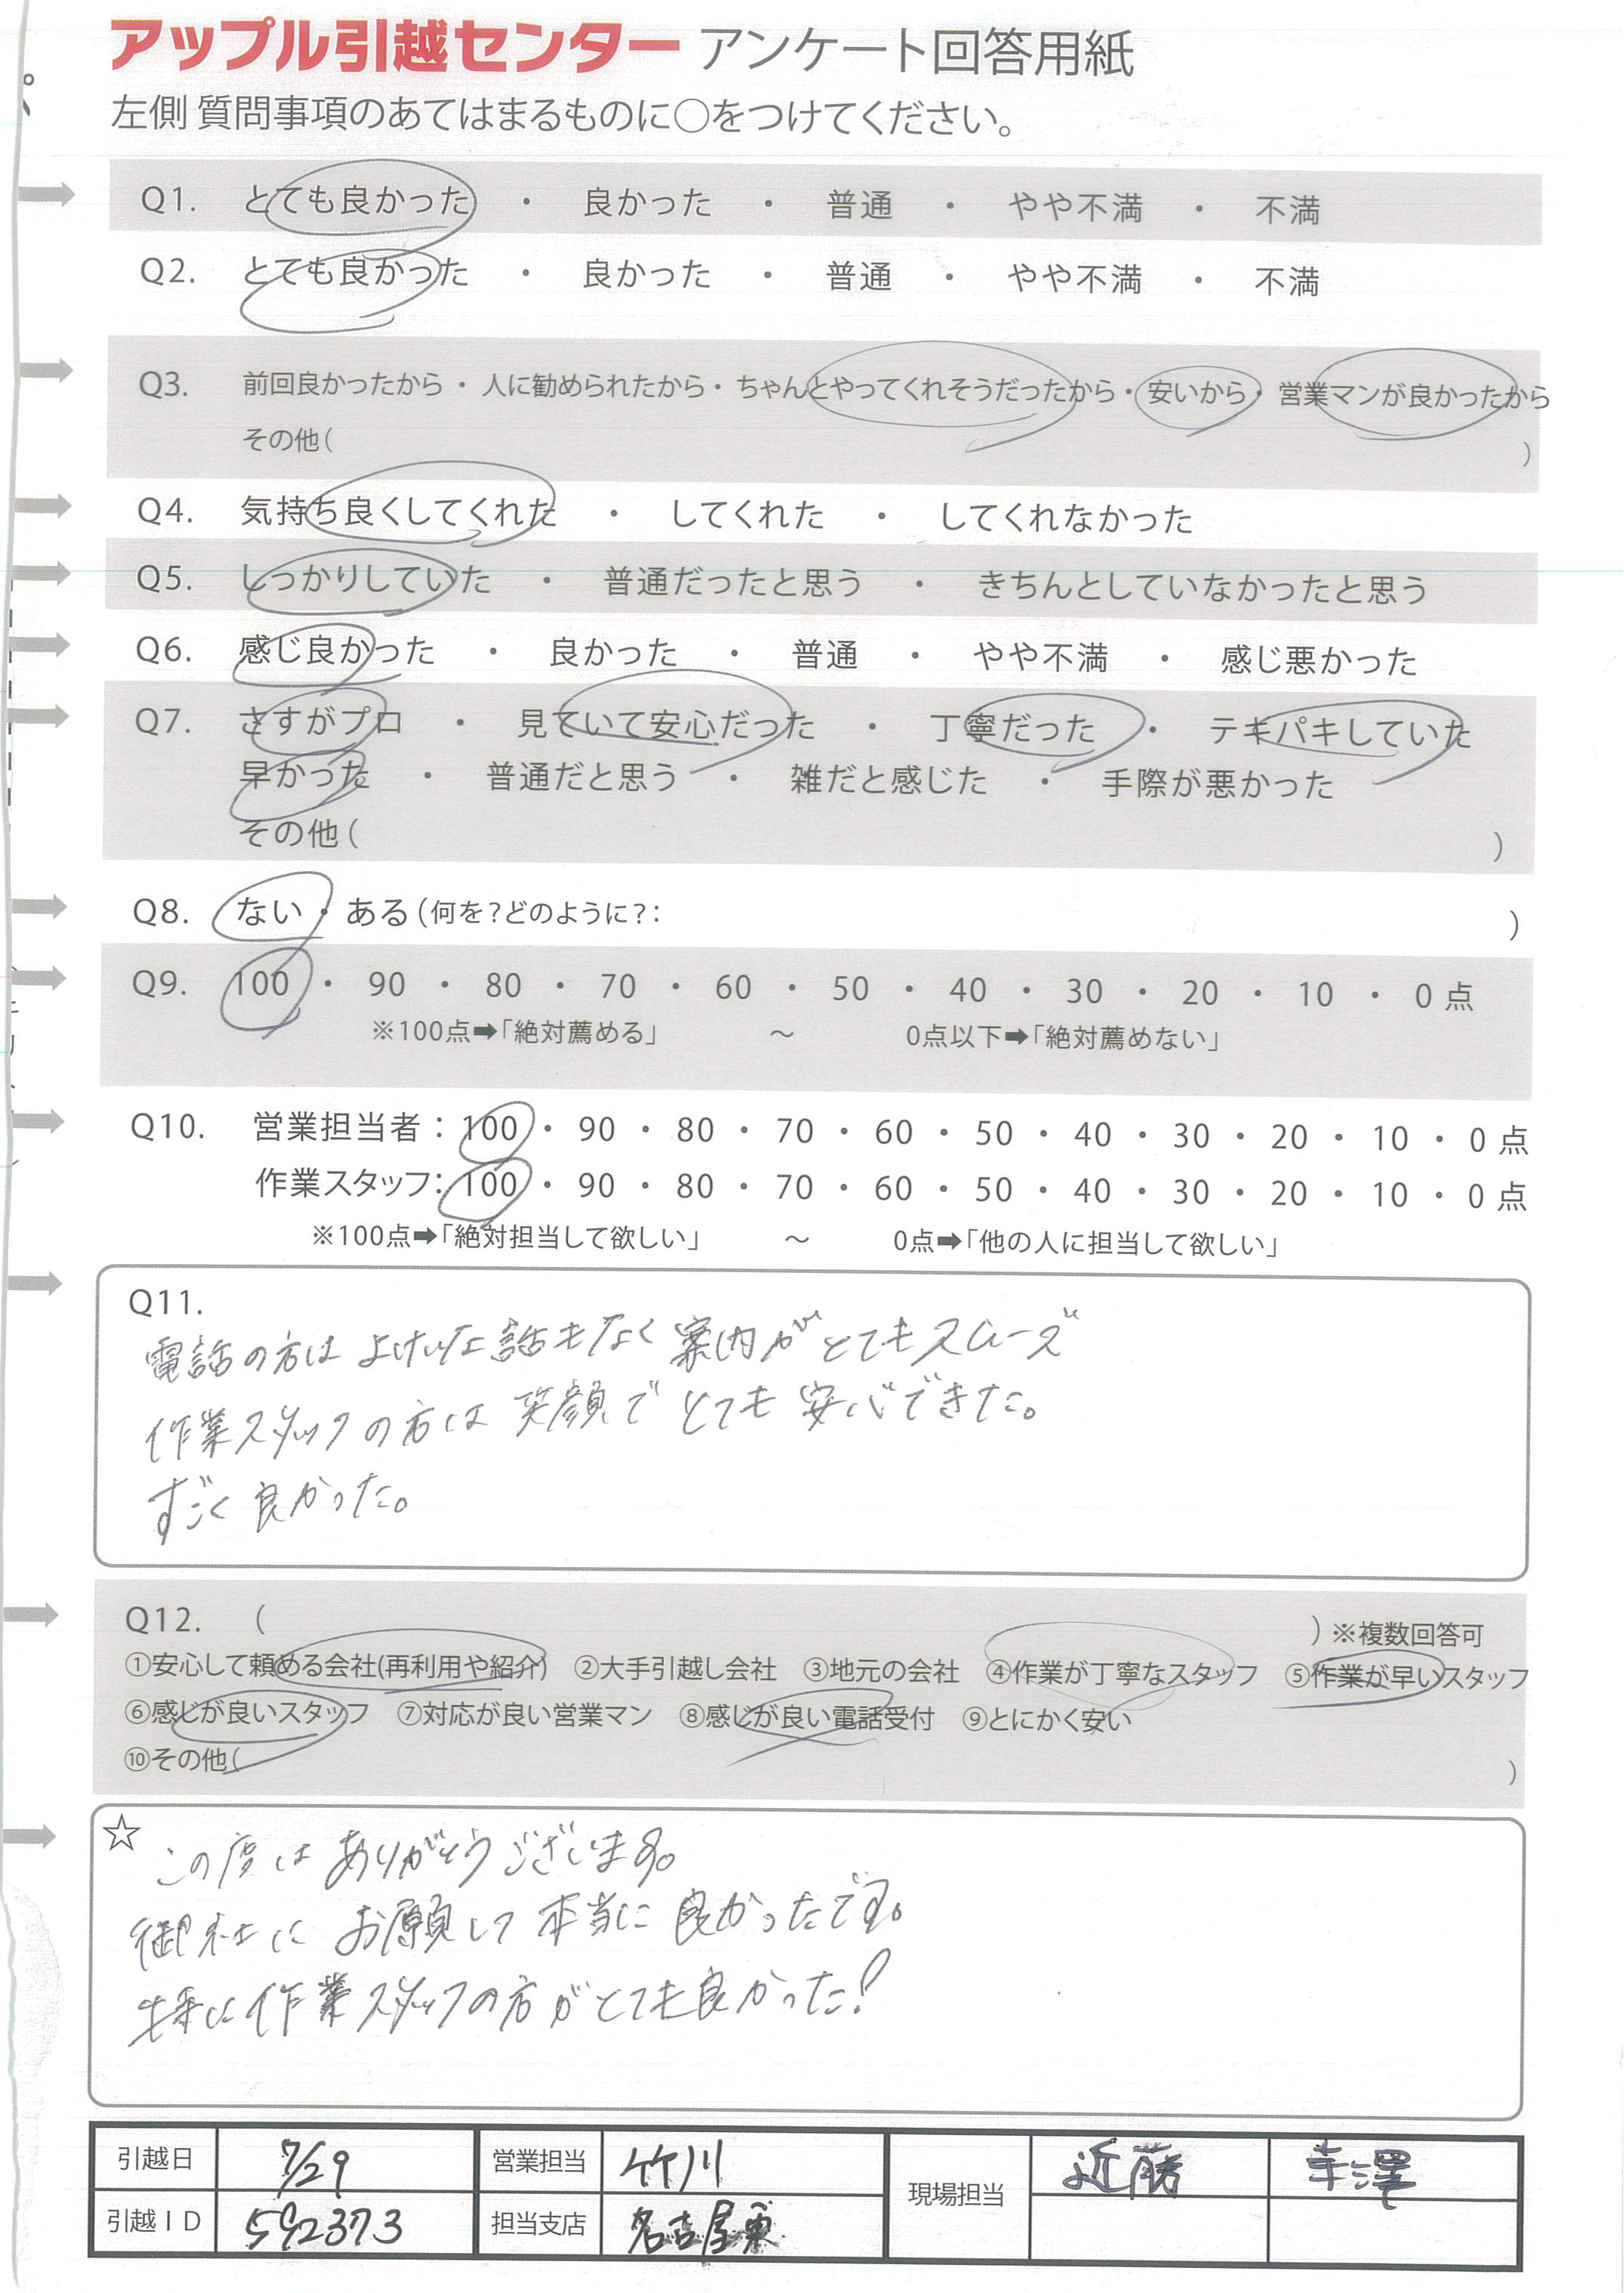 アップル引越センター アンケート回答用紙
左側 質問事項のあてはまるものに○をつけてください。
Q1. とても良かった ・ 良かった ・ 普通 ・ やや不満 ・ 不満
Q2. とても良かった ・ 良かった ・ 普通 ・ やや不満 ・ 不満
Q3. 前回良かったから・人に勧められたから・ちゃんとやってくれそうだったから・安いから・営業マンが良かったから
その他( )
Q4. 気持ち良くしてくれた ・ してくれた ・ してくれなかった
Q5. しっかりしていた ・ 普通だったと思う ・ きちんとしていなかったと思う
Q6. 感じ良かった ・ 良かった ・ 普通 ・ やや不満 ・ 感じ悪かった
Q7. さすがプロ ・ 見ていて安心だった ・ 丁寧だった ・ テキパキしていた
早かった ・ 普通だと思う ・ 雑だと感じた ・ 手際が悪かった
その他( )
Q8. ない・ある(何を?どのように?: )
Q9. 100 ・ 90 ・ 80 ・ 70 ・ 60 ・ 50 ・ 40 ・ 30 ・ 20 ・ 10 ・ 0 点
※100点➡「絶対薦める」 ～ 0点以下➡「絶対薦めない」
Q10. 営業担当者:100・90・80・70・60・50・40・30・20・10・0点
作業スタッフ:100・90・80・70・60・50・40・30・20・10・0点
※100点➡「絶対担当して欲しい」 ～ 0点➡「他の人に担当して欲しい」
Q11.
電話の方は よけいな話もなく 案内がとてもスムーズ
作業スタッフの方は 笑顔で とても 安心できた。
すごく良かった。
Q12. ( )※複数回答可
①安心して頼める会社(再利用や紹介) ②大手引越し会社 ③地元の会社 ④作業が丁寧なスタッフ ⑤作業が早いスタッフ
⑥感じが良いスタッフ ⑦対応が良い営業マン ⑧感じが良い電話受付 ⑨とにかく安い
⑩その他( )
☆ この度は ありがとうございます。
御社に お願して 本当に 良かったです。
特に作業スタッフの方がとても良かった!
引越日 7/29 営業担当 竹川 現場担当 近藤 幸澤
引越ID 592373 担当支店 名古屋東